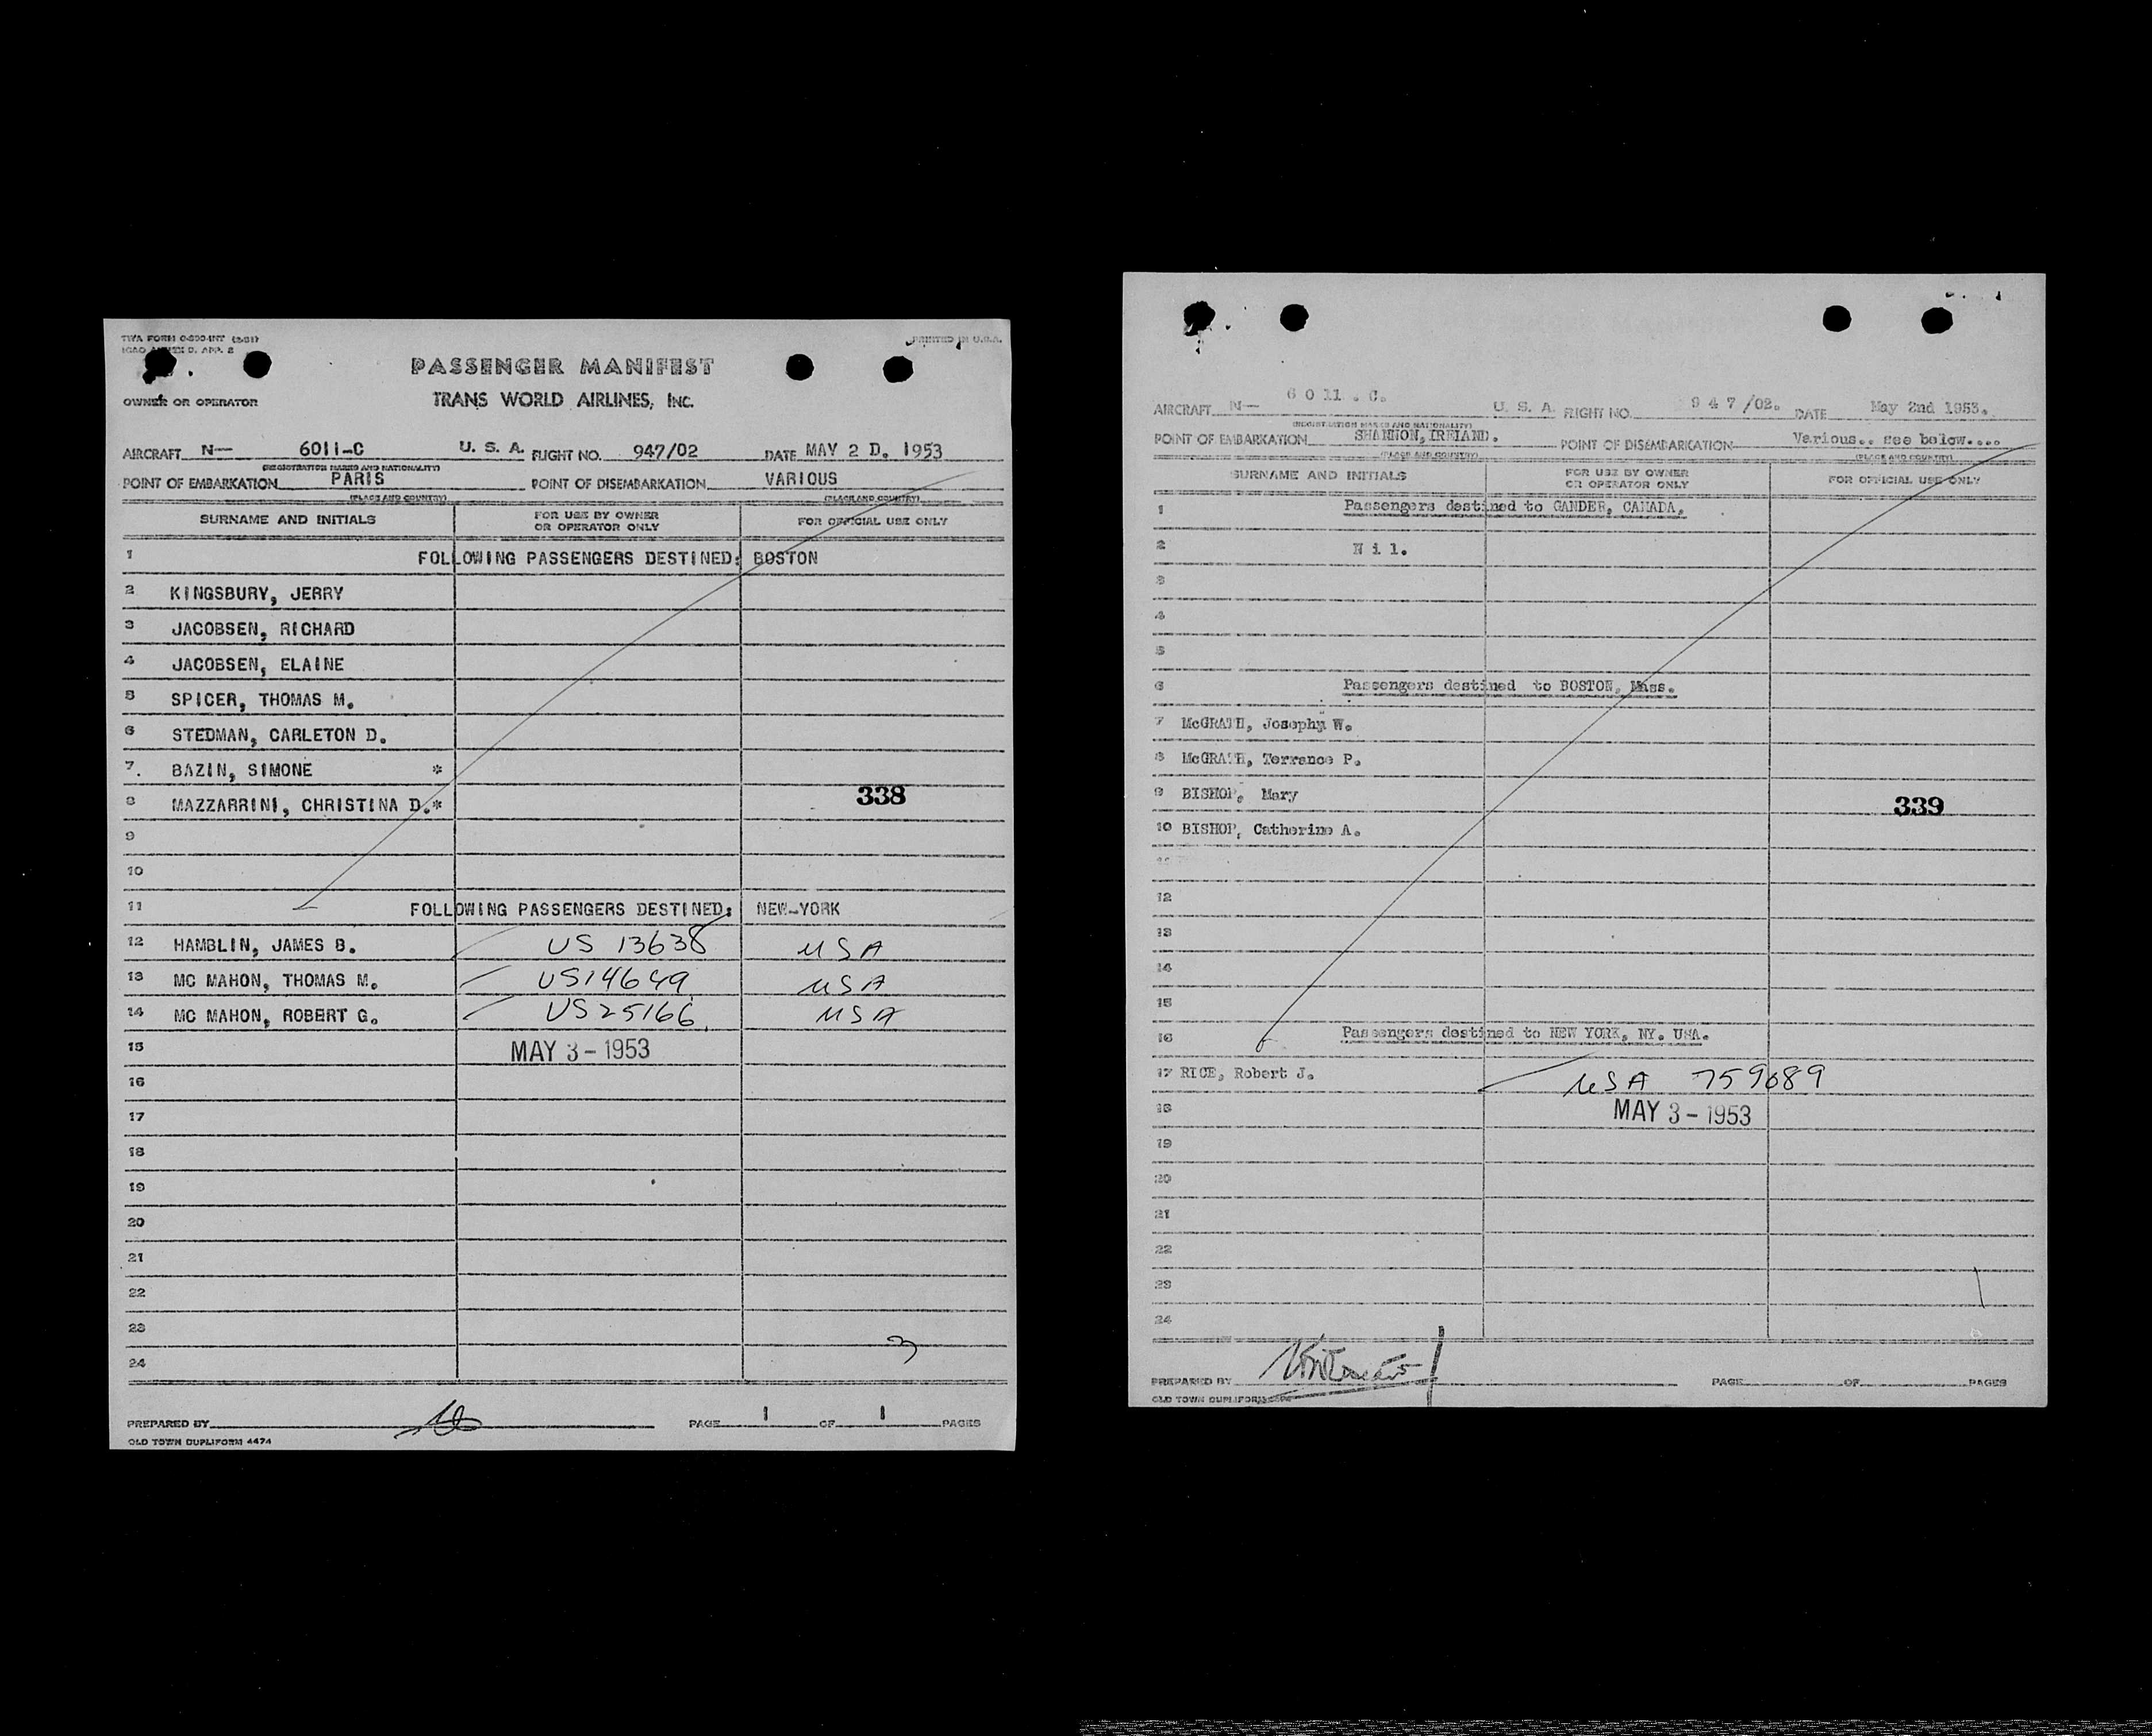 TWA FORM
PRINTED IN U.S.A.
PASSENGER MANIFEST
OWNER OR OPERATOR
TRANS WORLD AIRLINES, INC.
AIRCRAFT N— 6011-C U. S. A. FLIGHT NO. 947/02 DATE MAY 2 D. 1953
(REGISTRATION MARKS AND NATIONALITY)
POINT OF EMBARKATION PARIS POINT OF DISEMBARKATION VARIOUS
(PLACE AND COUNTRY) (PLACE AND COUNTRY)
SURNAME AND INITIALS FOR USE BY OWNER OR OPERATOR ONLY FOR OFFICIAL USE ONLY
1 FOLLOWING PASSENGERS DESTINED: BOSTON
2 KINGSBURY, JERRY
3 JACOBSEN, RICHARD
4 JACOBSEN, ELAINE
5 SPICER, THOMAS M.
6 STEDMAN, CARLETON D.
7. BAZIN, SIMONE *
8 MAZZARRINI, CHRISTINA D.* 338
9
10
11 FOLLOWING PASSENGERS DESTINED: NEW-YORK
12 HAMBLIN, JAMES B. US 13638 USA
13 MC MAHON, THOMAS M. US14649 USA
14 MC MAHON, ROBERT G. US25166 USA
15 MAY 3-1953
16
17
18
19
20
21
22
23 3
24
PREPARED BY PAGE 1 OF 1 PAGES
OLD TOWN DUPLIFORM 4474
AIRCRAFT N— 6 0 11 . C. U. S. A. FLIGHT NO. 9 4 7 /02. DATE May 2nd 1953.
(REGISTRATION MARKS AND NATIONALITY)
POINT OF EMBARKATION SHANNON, IRELAND. POINT OF DISEMBARKATION Various.. see below....
(PLACE AND COUNTRY) (PLACE AND COUNTRY)
SURNAME AND INITIALS FOR USE BY OWNER OR OPERATOR ONLY FOR OFFICIAL USE ONLY
1 Passengers destined to GANDER, CANADA.
2 N i l.
3
4
5
6 Passengers destined to BOSTON, Mass.
7 McGRATH, Josephy W.
8 McGRATH, Terrance P.
9 BISHOP, Mary 339
10 BISHOP, Catherine A.
11
12
13
14
15
16 Passengers destined to NEW YORK, NY. USA.
17 RICE, Robert J. USA 759689
18 MAY 3-1953
19
20
21
22
23
24
PREPARED BY PAGE OF PAGES
OLD TOWN DUPLIFORM